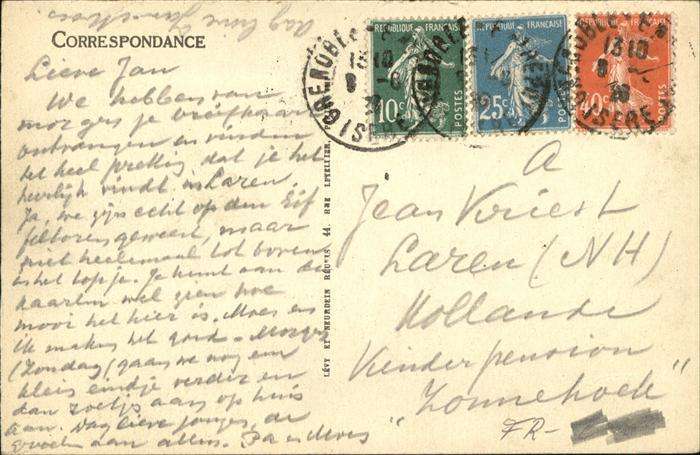 CORRESPONDANCE
Lieve Jan
We hebben van
morgen je briefkaart
ontvangen en vinden
het heel prettig dat je het
heerlijk vindt in Laren.
Ja, we zijn echt op den Eif
feltoren geweest, maar
niet heelemaal tot boven
in het topje. Je kunt aan de
kaarten wel zien hoe
mooi het hier is. Moes en
ik maken het goed. Morgen
(Zondag) gaan we nog een
klein eindje verder en
dan zoetjes aan op huis
aan. Dag lieve jongen, de
groeten aan allen. Pa en Moes
LÉVY ET NEURDEIN RÉUNIS 44, RUE LETELLIER, P
RÉPUBLIQUE FRANÇAISE
10c
POSTES
RÉPUBLIQUE FRANÇAISE
25c
POSTES
40c
GRENOBLE
ISERE
13 10
GRENOBLE
ISERE
A
Jean Kriest
Laren (NH)
Hollande
Kinderpension
"Zonnehoek"
FR-